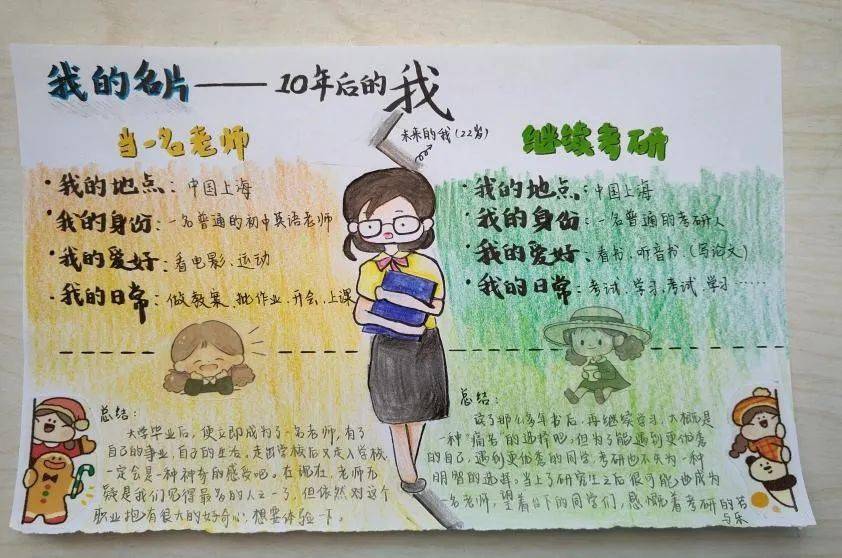 我的名片——10年后的我
未来的我(22岁)
当一名老师
·我的地点:中国上海
·我的身份:一名普通的初中英语老师
·我的爱好:看电影、运动
·我的日常:做教案、批作业、开会、上课
总结:
大学毕业后,便立即成为了一名老师,有了
自己的事业,自己的生存,走出学校后又走入学校,
一定会是一种神奇的感受吧。在现在,老师无
疑是我们见得最多的人之一了,但依然对这个
职业抱有很大的好奇心,想要体验一下。
继续考研
·我的地点:中国上海
·我的身份:一名普通的考研人
·我的爱好:看书、听音书、(写论文)
·我的日常:考试、学习、考试、学习……
总结:
读了那么多年书后,再继续学习,大概是
一种“痛苦”的选择吧,但为了能遇到更优秀
的自己,遇到更优秀的同学,考研也不失为一种
明智的选择,当上了研究生之后很可能也成为
一名老师,望着台下的同学们,感慨着考研的苦
与乐